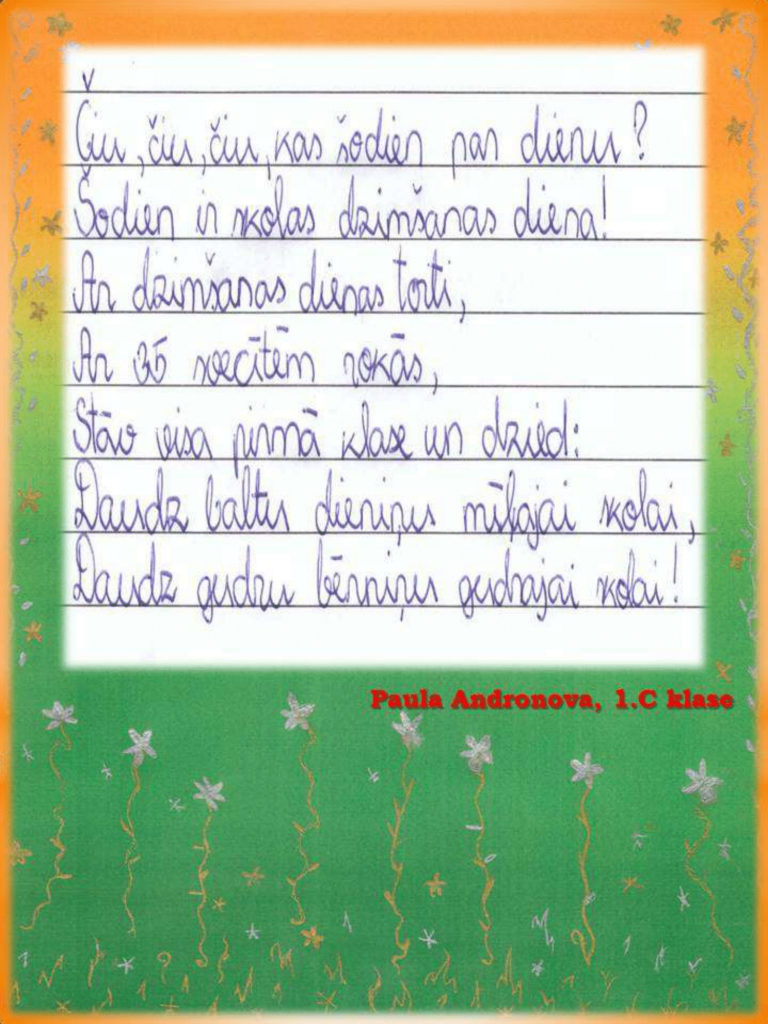 Čiu, čiu, čiu, kas šodien par dienu?
Šodien ir skolas dzimšanas diena!
Ar dzimšanas dienas torti,
Ar 35 svecītēm rokās,
Stāv visa pirmā klase un dzied:
Daudz baltu dieniņu mīļajai skolai,
Daudz gudru bērniņu gudrajai skolai!
Paula Andronova, 1.C klase